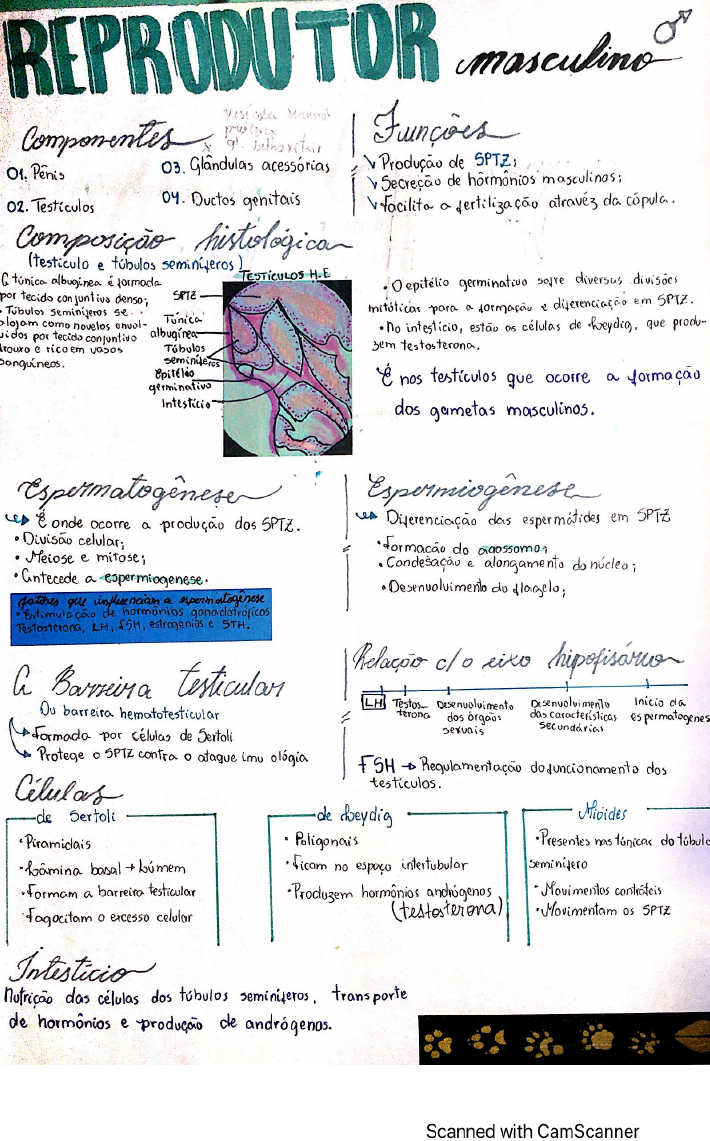 REPRODUTOR masculino
Componentes
01. Pênis
02. Testículos
03. Glândulas acessórias
04. Ductos genitais
Funções
Produção de SPTZ;
Secreção de hormônios masculinos;
Facilita a fertilização atravéz da cópula.
Composição histológica
(testículo e túbulos seminíferos)
A túnica albugínea é formada
por tecido conjuntivo denso;
Túbulos seminíferos se
alojam como novelos envol-
vidos por tecido conjuntivo
frouro e rico em vasos
sanguíneos.
TESTÍCULOS H.E
SPTZ
Túnica
albugínea
Túbulos
seminíferos
Epitélio
germinativo
Intestício
• O epitélio germinativo sofre diversas divisões
mitóticas para a formação e diferenciação em SPTZ.
• No intestício, estão as células de Leydig, que produ-
zem testosterona.
É nos testículos que ocorre a formação
dos gametas masculinos.
Espermatogênese
É onde ocorre a produção dos SPTZ.
• Divisão celular;
• Meiose e mitose;
• Antecede a espermiogenese.
fatores que influenciam a espermatogênese
• Estimulação de hormônios gonadotróficos
Testosterona, LH, FSH, estrogenios e STH.
Espermiogênese
Diferenciação das espermátides em SPTZ
• Formacão do acossomo;
• Condesação e alongamento do núcleo;
• Desenvolvimento do flagelo;
A Barreira testicular
Ou barreira hematotesticular
Formada por células de Sertoli
Protege o SPTZ contra o ataque imu ológia
Relação c/o eixo hipofisário
LH
Testos-
terona
Desenvolvimento
dos órgãos
sexuais
Desenvolvimento
das características
secundárias
Início da
espermatogenes
FSH → Regulamentação do funcionamento dos
testículos.
Células
de Sertoli
• Piramidais
• Lâmina basal → Lúmem
• Formam a barreira testicular
Fagocitam o excesso celular
de Leydig
• Poligonais
• Ficam no espaço intertubular
• Produzem hormônios andrógenos
(testosterona)
Mioides
• Presentes nas túnicas do túbulo
seminífero
• Movimentos contráteis
• Movimentam os SPTZ
Intestício
Nutrição das células dos túbulos seminíferos, transporte
de hormônios e produção de andrógenos.
Scanned with CamScanner